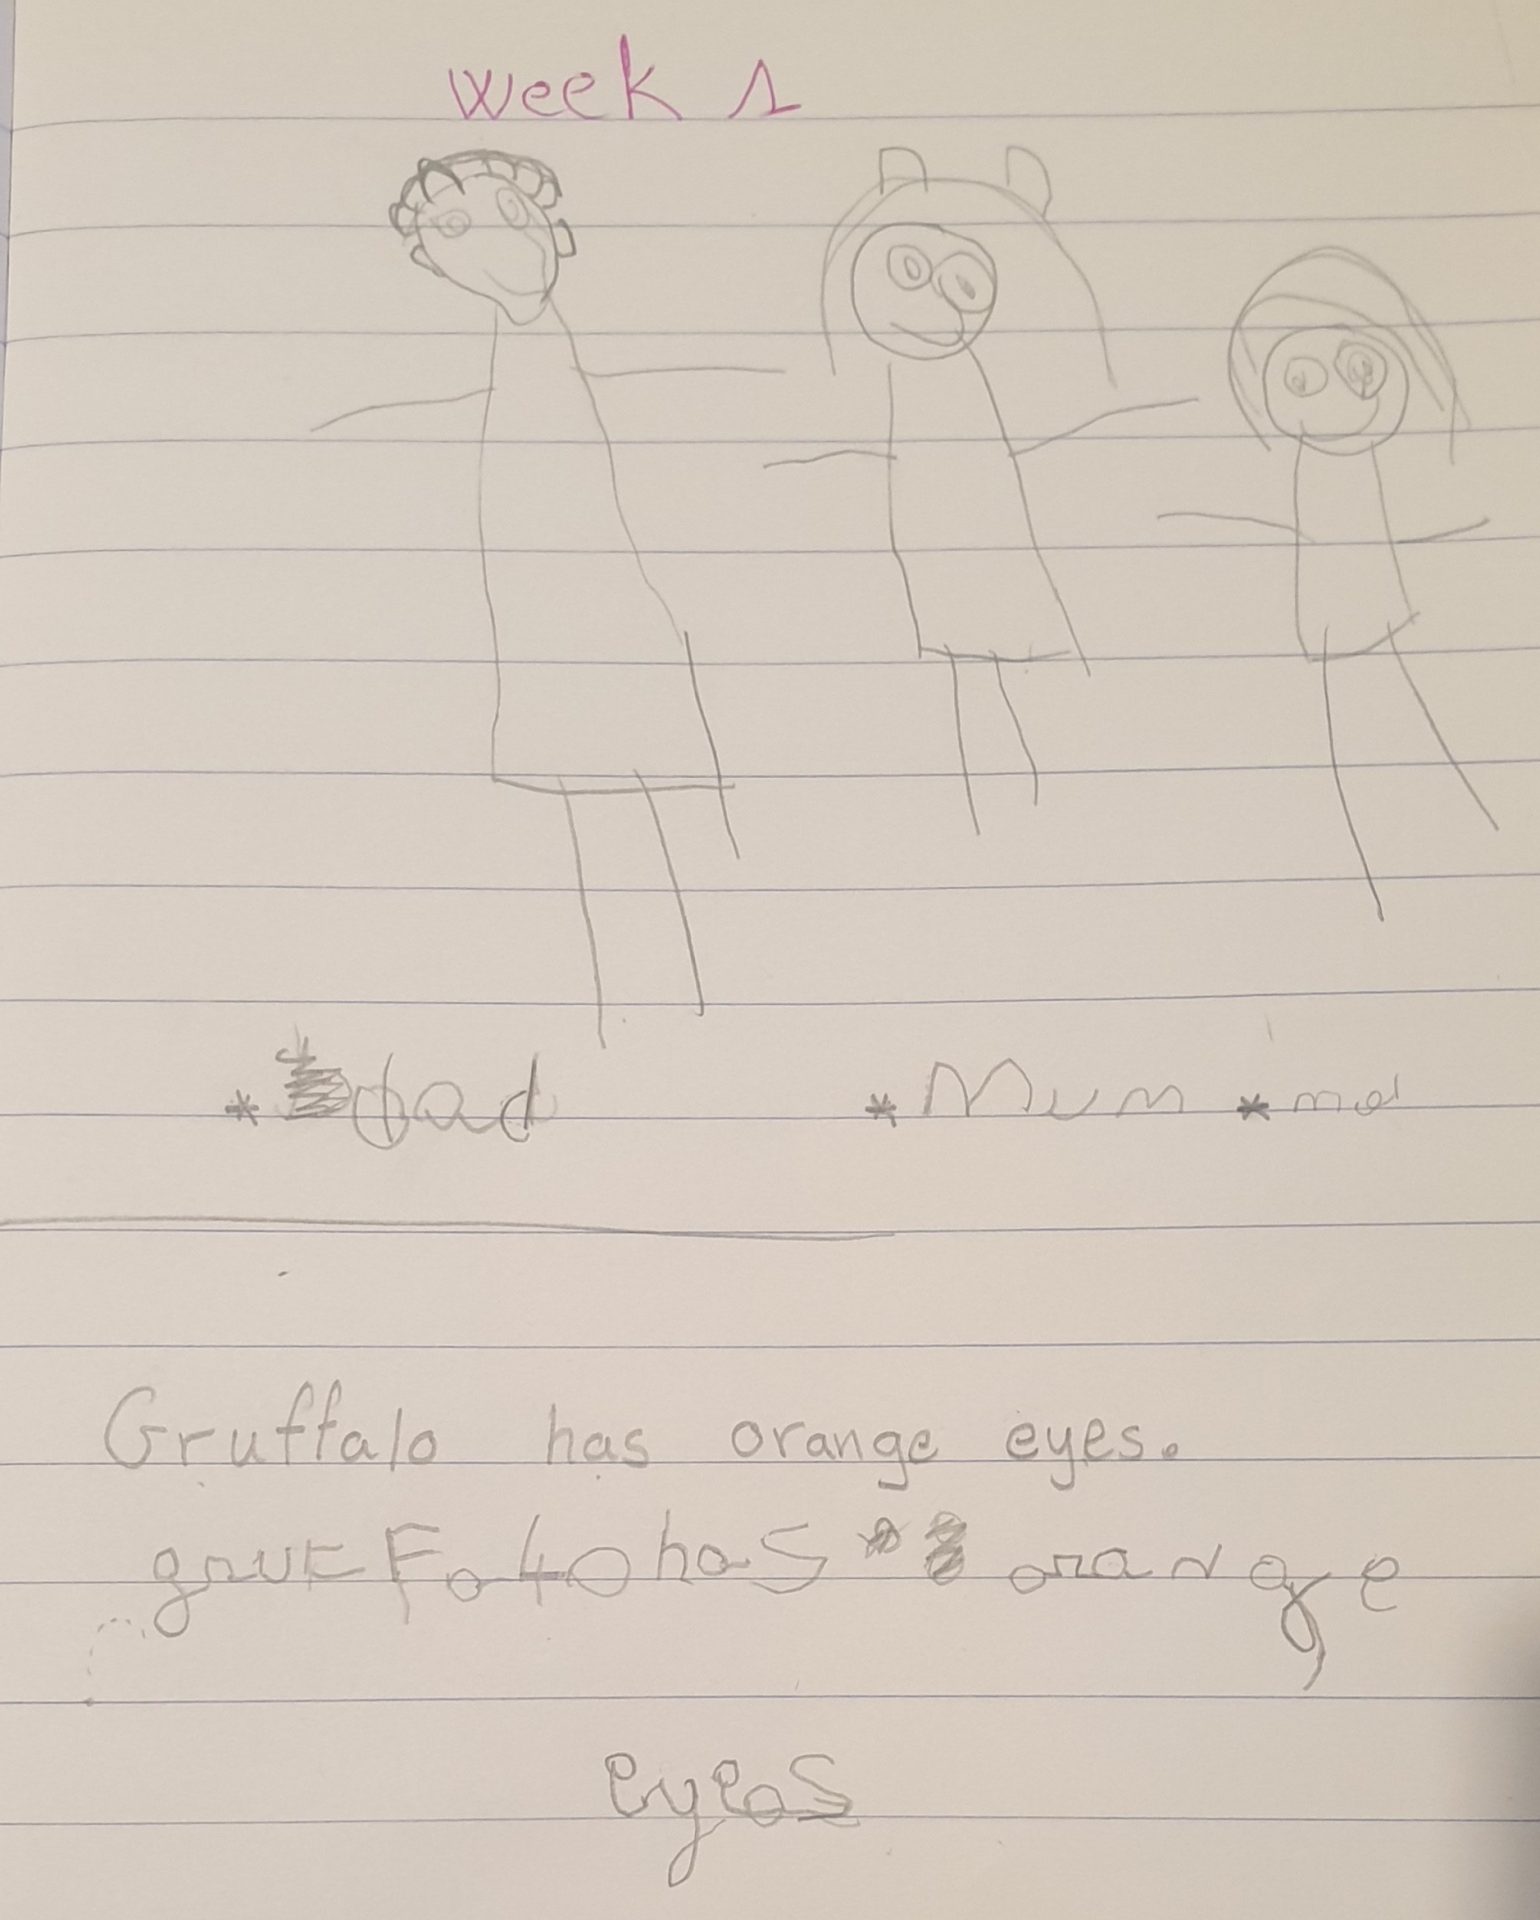 Week 1
* dad * Mum * me
Gruffalo has orange eyes.
gruFFalo haS orange
eyes